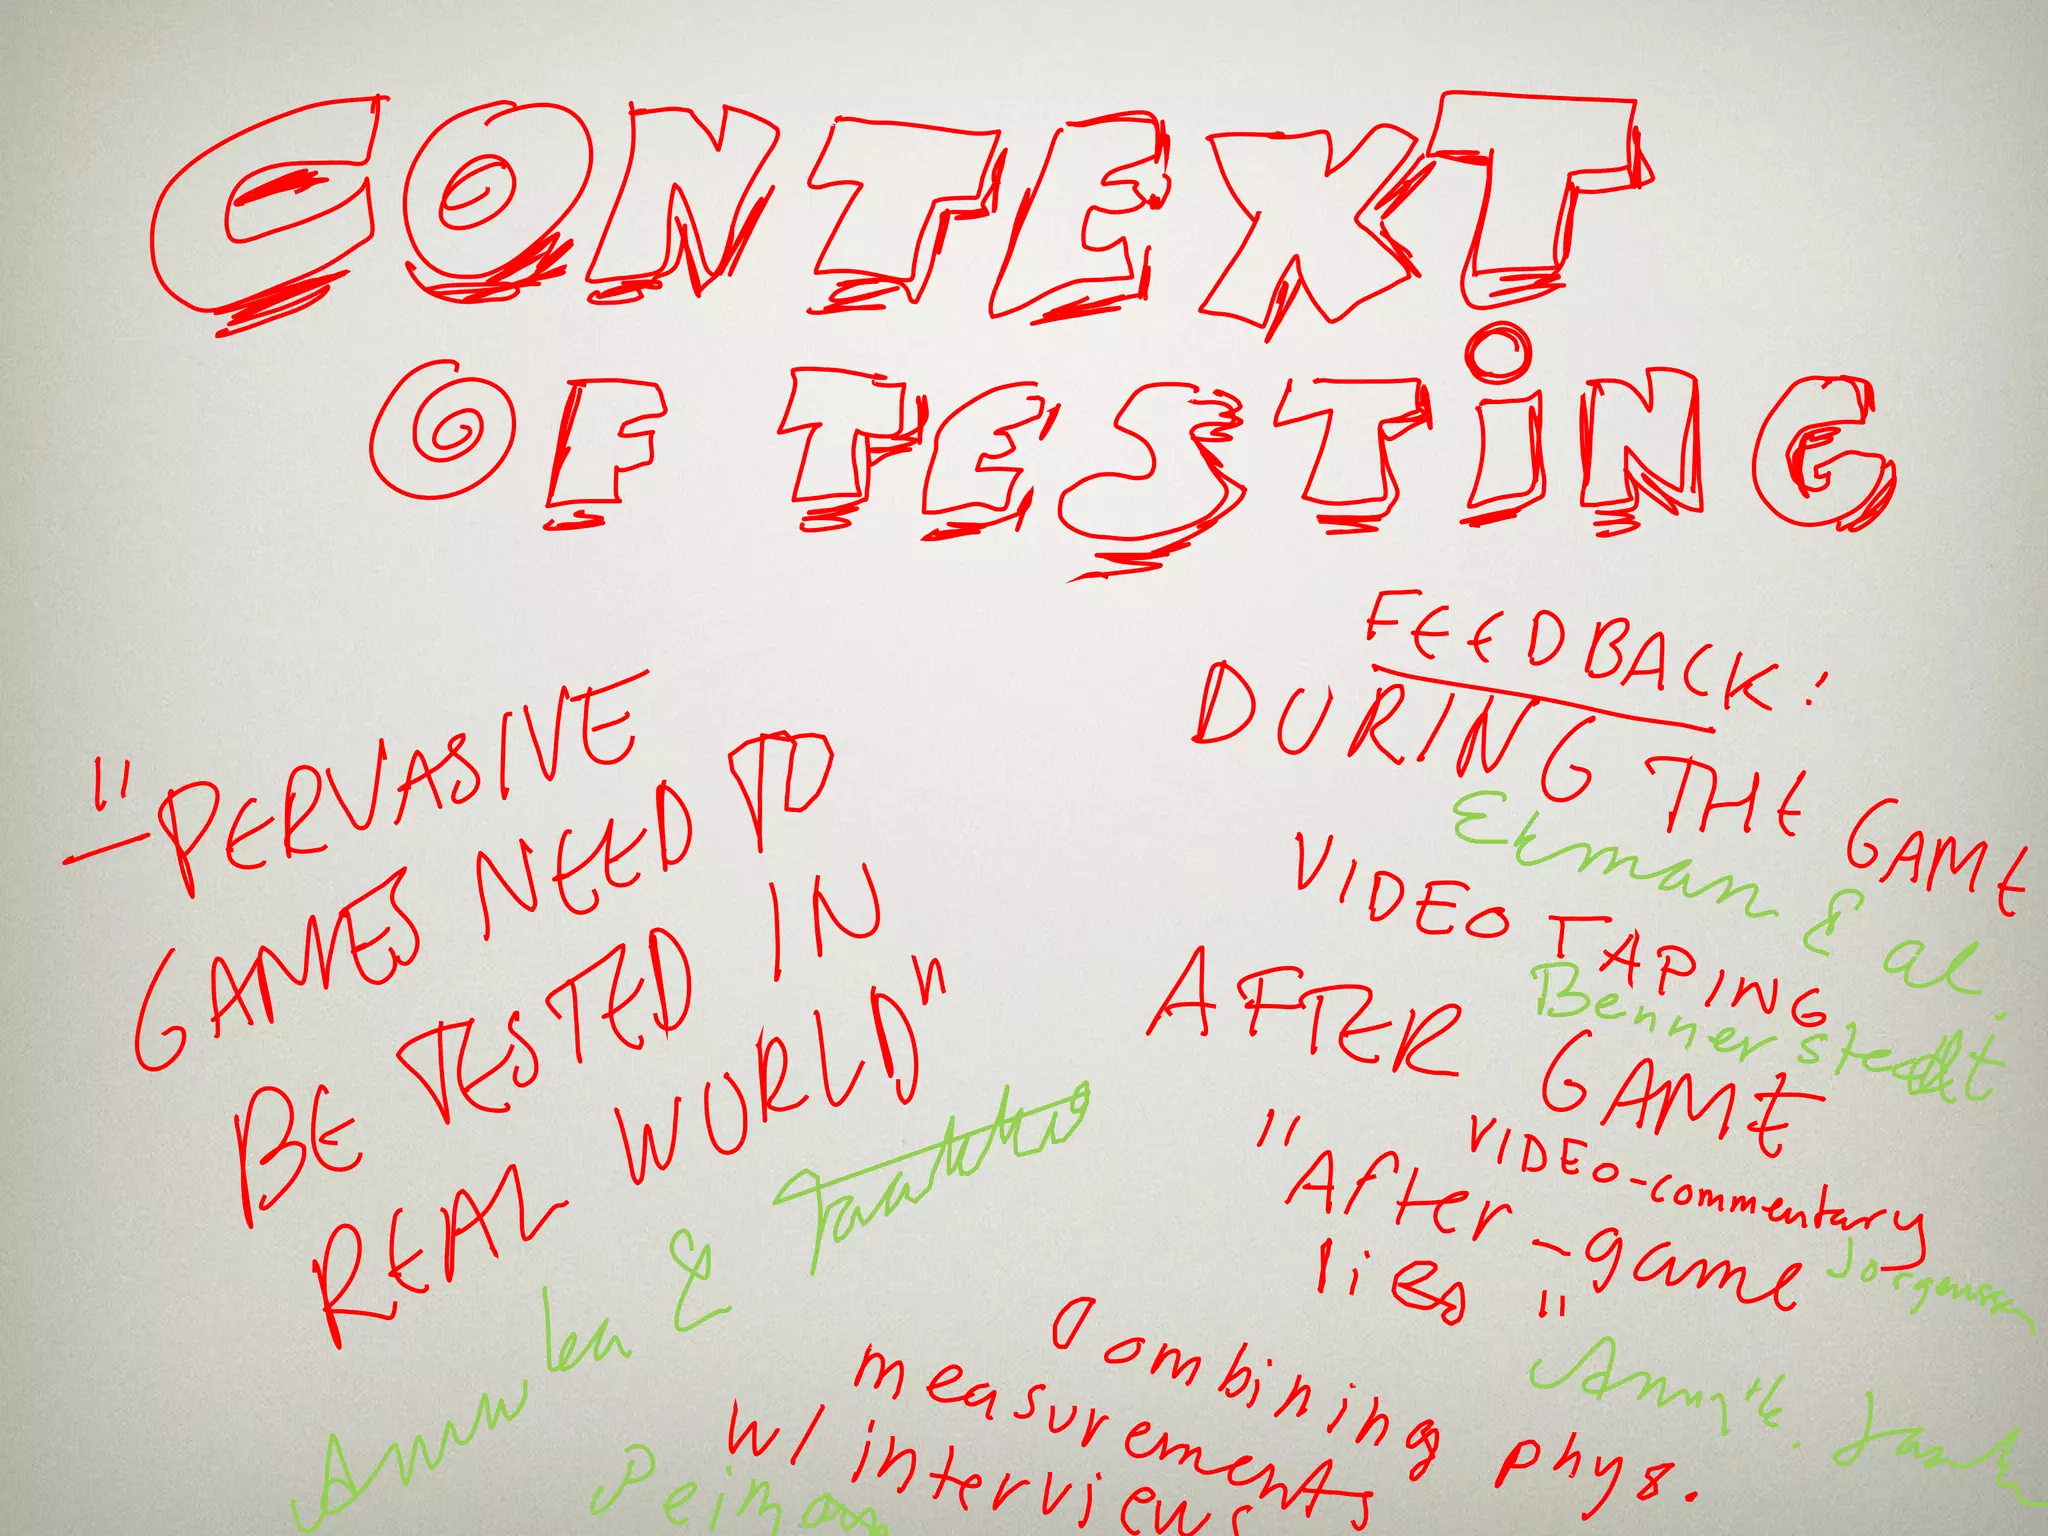 CONTEXT
OF TESTiNG
"PERVASIVE
GAMES NEED TO
BE TESTED IN
REAL WORLD"
&
FEEDBACK:
DURING THE GAME
Ekman & al.
VIDEO TAPING
Bennerstedt
AFTER GAME
VIDEO-commentary
Jorgenssen
"After-game
lies"
Combining phys.
measurements
w/ interviews